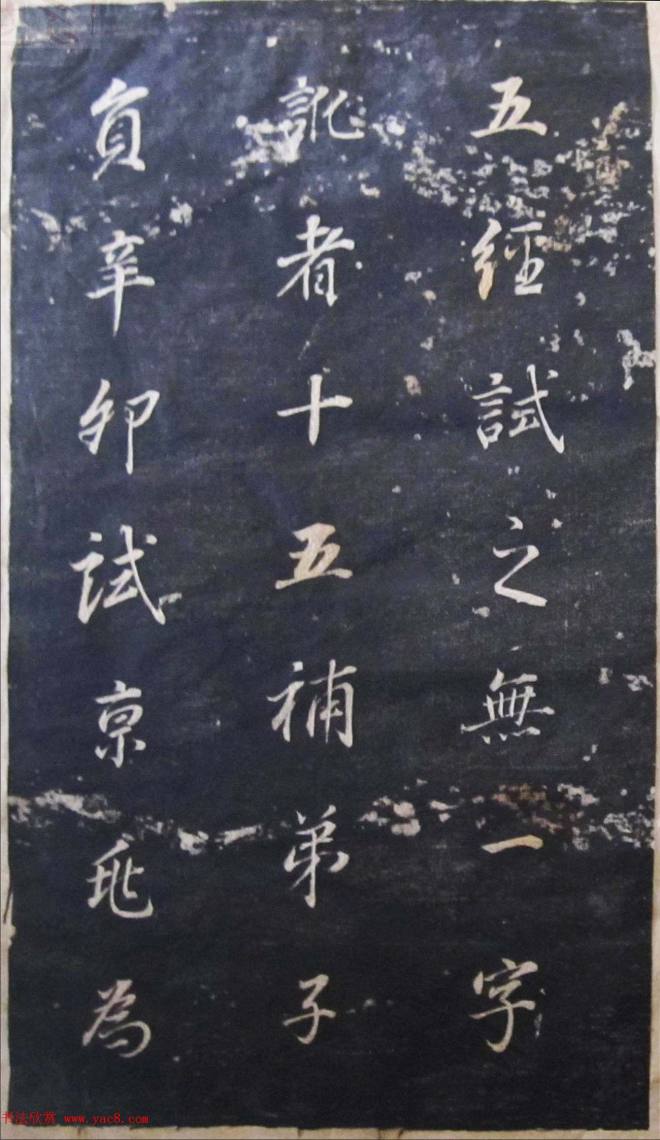 五經試之無一字
訛者十五補弟子
員辛卯試京兆為
书法欣赏 www.yac8.com